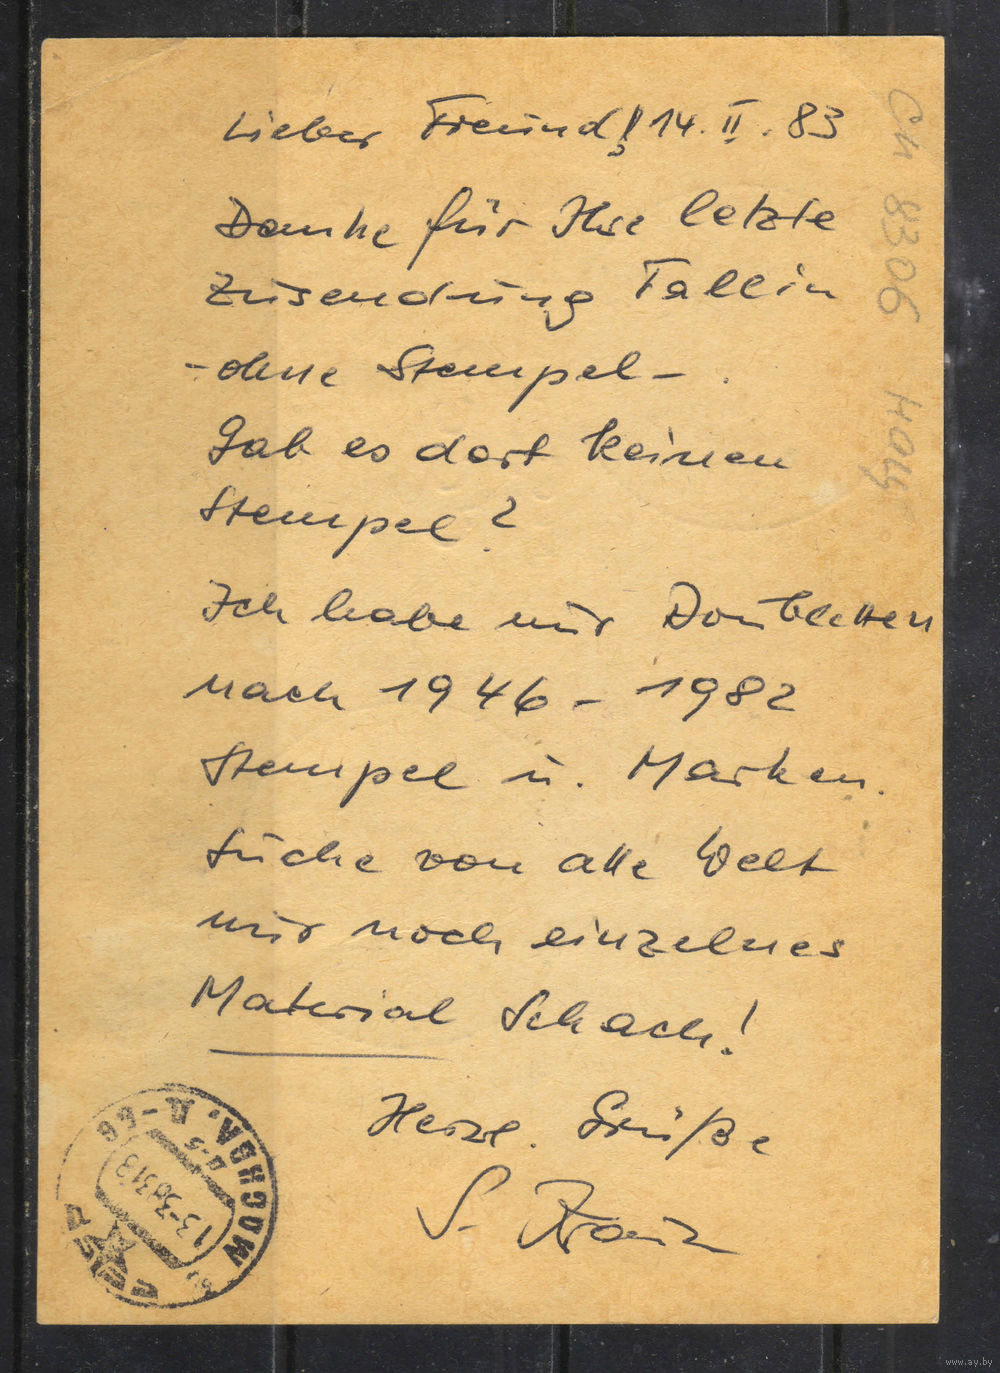 Lieber Freund! 14. II. 83
Danke für Ihre letzte
Zusendung Tallin
- ohne Stempel - .
Gab es dort keinen
Stempel?
Ich habe nur Doubletten
nach 1946 - 1982
Stempel u. Marken.
Suche von alle Welt
nur noch einzelnes
Material Schach!
Herzl. Grüße
S.
МОСКВА, Д-66
СССР
См 8306
www.ay.by